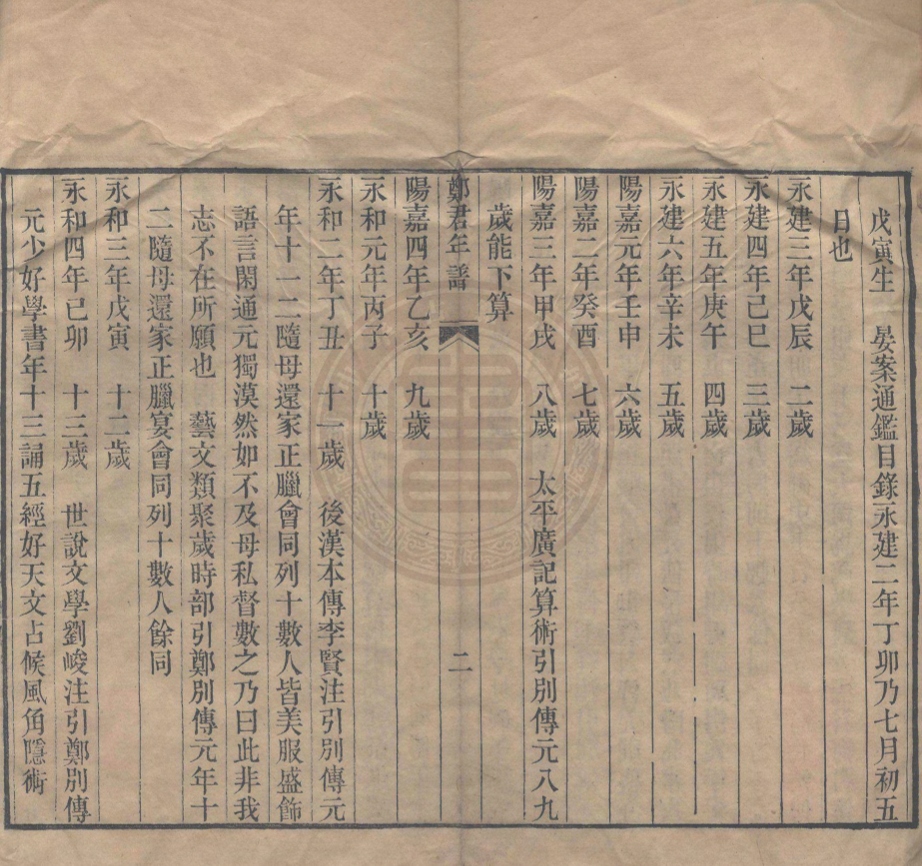 戊寅生　晏案通鑑目錄永建二年丁卯乃七月初五
日也
永建三年戊辰　二歲
永建四年己巳　三歲
永建五年庚午　四歲
永建六年辛未　五歲
陽嘉元年壬申　六歲
陽嘉二年癸酉　七歲
陽嘉三年甲戌　八歲　太平廣記算術引別傳元八九
歲能下算
鄭君年譜　二
陽嘉四年乙亥　九歲
永和元年丙子　十歲
永和二年丁丑　十一歲　後漢本傳李賢注引別傳元
年十一二隨母還家正臘會同列十數人皆美服盛飾
語言閑通元獨漠然如不及母私督數之乃曰此非我
志不在所願也　藝文類聚歲時部引鄭別傳元年十
二隨母還家正臘宴會同列十數人餘同
永和三年戊寅　十二歲
永和四年己卯　十三歲　世說文學劉峻注引鄭別傳
元少好學書年十三誦五經好天文占候風角隱術